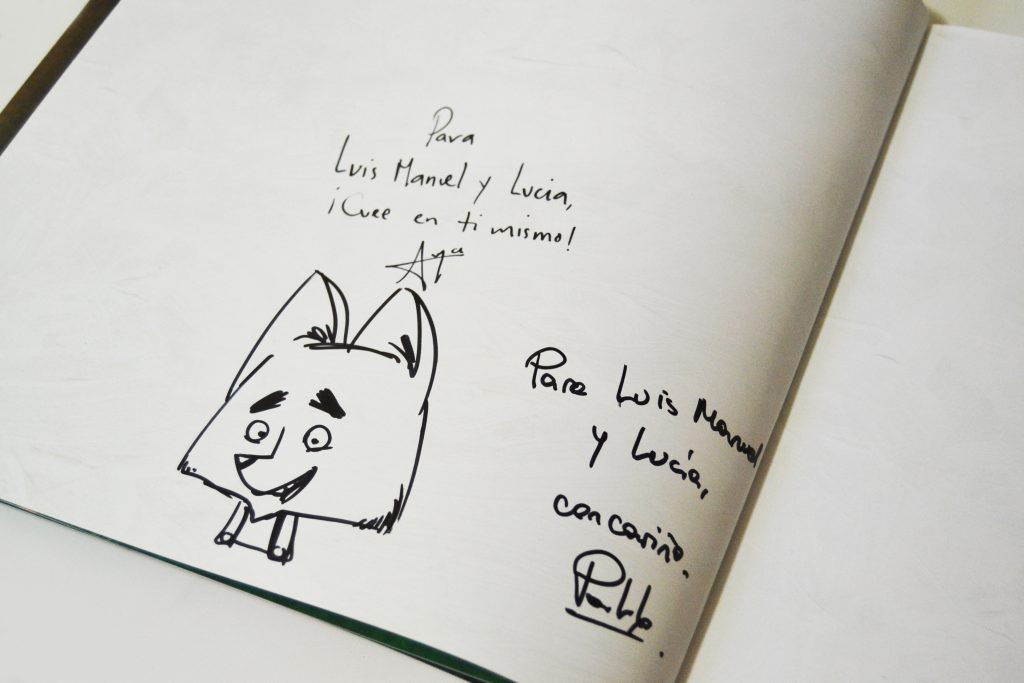 Para
Luis Manuel y Lucia,
¡Cree en ti mismo!
Para Luis Manuel
y Lucía,
con cariño.
Pablo